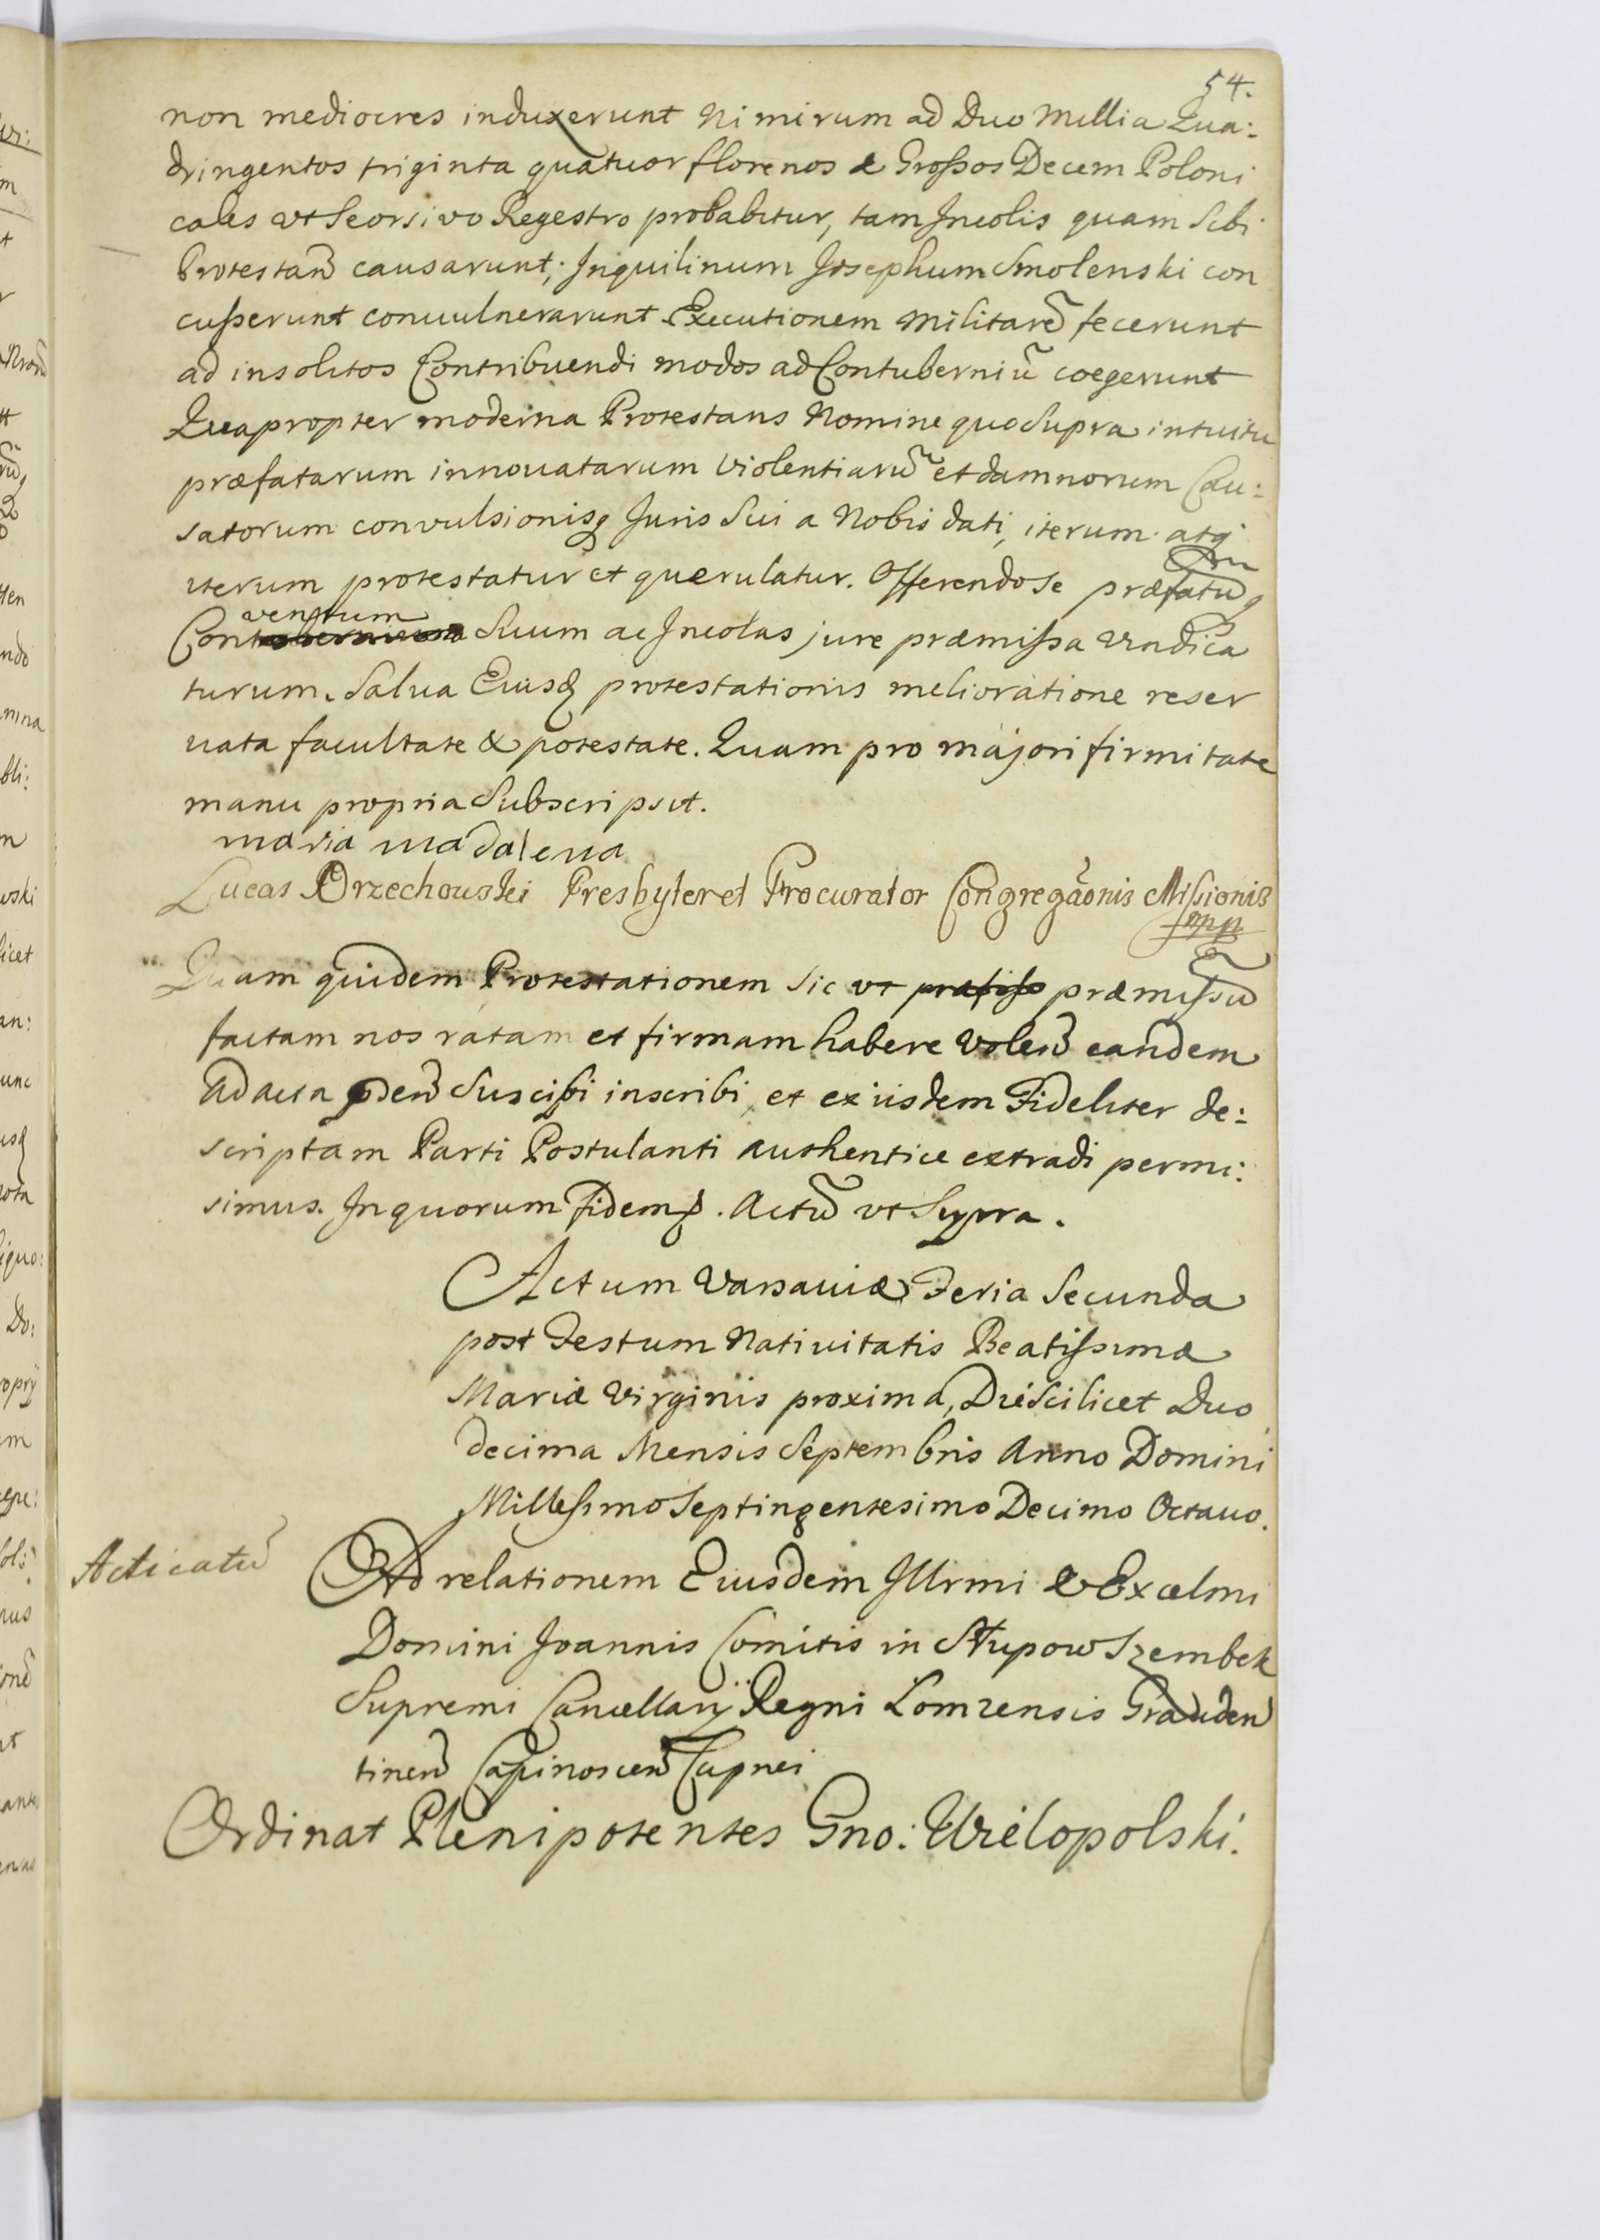 54.
non mediocres induxerunt Nimirum ad Duo Millia Qua:
dringentos triginta quatuor florenos & Grossos Decem Poloni
cales vt Seorsivo Regestro probabitur, tam Incolis quam Sibi
Protestan̄ causarunt; Inquilinum Josephum Smolenski con
cusserunt convulnerarunt Executionem Militarē fecerunt
ad insolitos Contribuendi modos ad Contuberniū coegerunt
Quapropter moderna Protestans Nomine quo Supra intuitu
præfatarum innouatarum Violentiarū et damnorum Cau:
satorum convulsionisq Juris Sui a Nobis dati, iterum atq
iterum protestatur et querulatur. Offerendo se præfatū
ventum
Con Suum ac Incolas jure præmissa vindica
turum. Salua Eiusd protestationis melioratione reser
uata facultate & potestate. Quam pro majori firmitate
manu propria Subscripsit.
maria madalena
Lucas Orzechowski Presbyter et Procurator Congregaōnis Missionis
mpp
Quam quidem Protestationem Sic vt præmissū
factam nos ratam et firmam habere Volen̄ eandem
ad acta pden̄ Suscipi inscribi, et ex iisdem Fideliter de:
scriptam Parti Postulanti authentice extradi permi:
simus. In quorum fidem. Actū vt Supra.
Actum Varsaviæ Feria Secunda
post Festum Nativitatis Beatissimæ
Mariæ Virginis proxima, Die Scilicet Duo
decima Mensis Septembris Anno Domini
Millesimo Septingentesimo Decimo Octavo.
Acticatū
Ad relationem Eiusdem Illrmi & Excelmi
Domini Joannis Comitis in Słupow Szembek
Supremi Cancellarij Regni Lomzensis Grauden
tinen̄ Capinoscen̄ Capnei
Ordinat Plenipotentes Gno: Wielopolski.